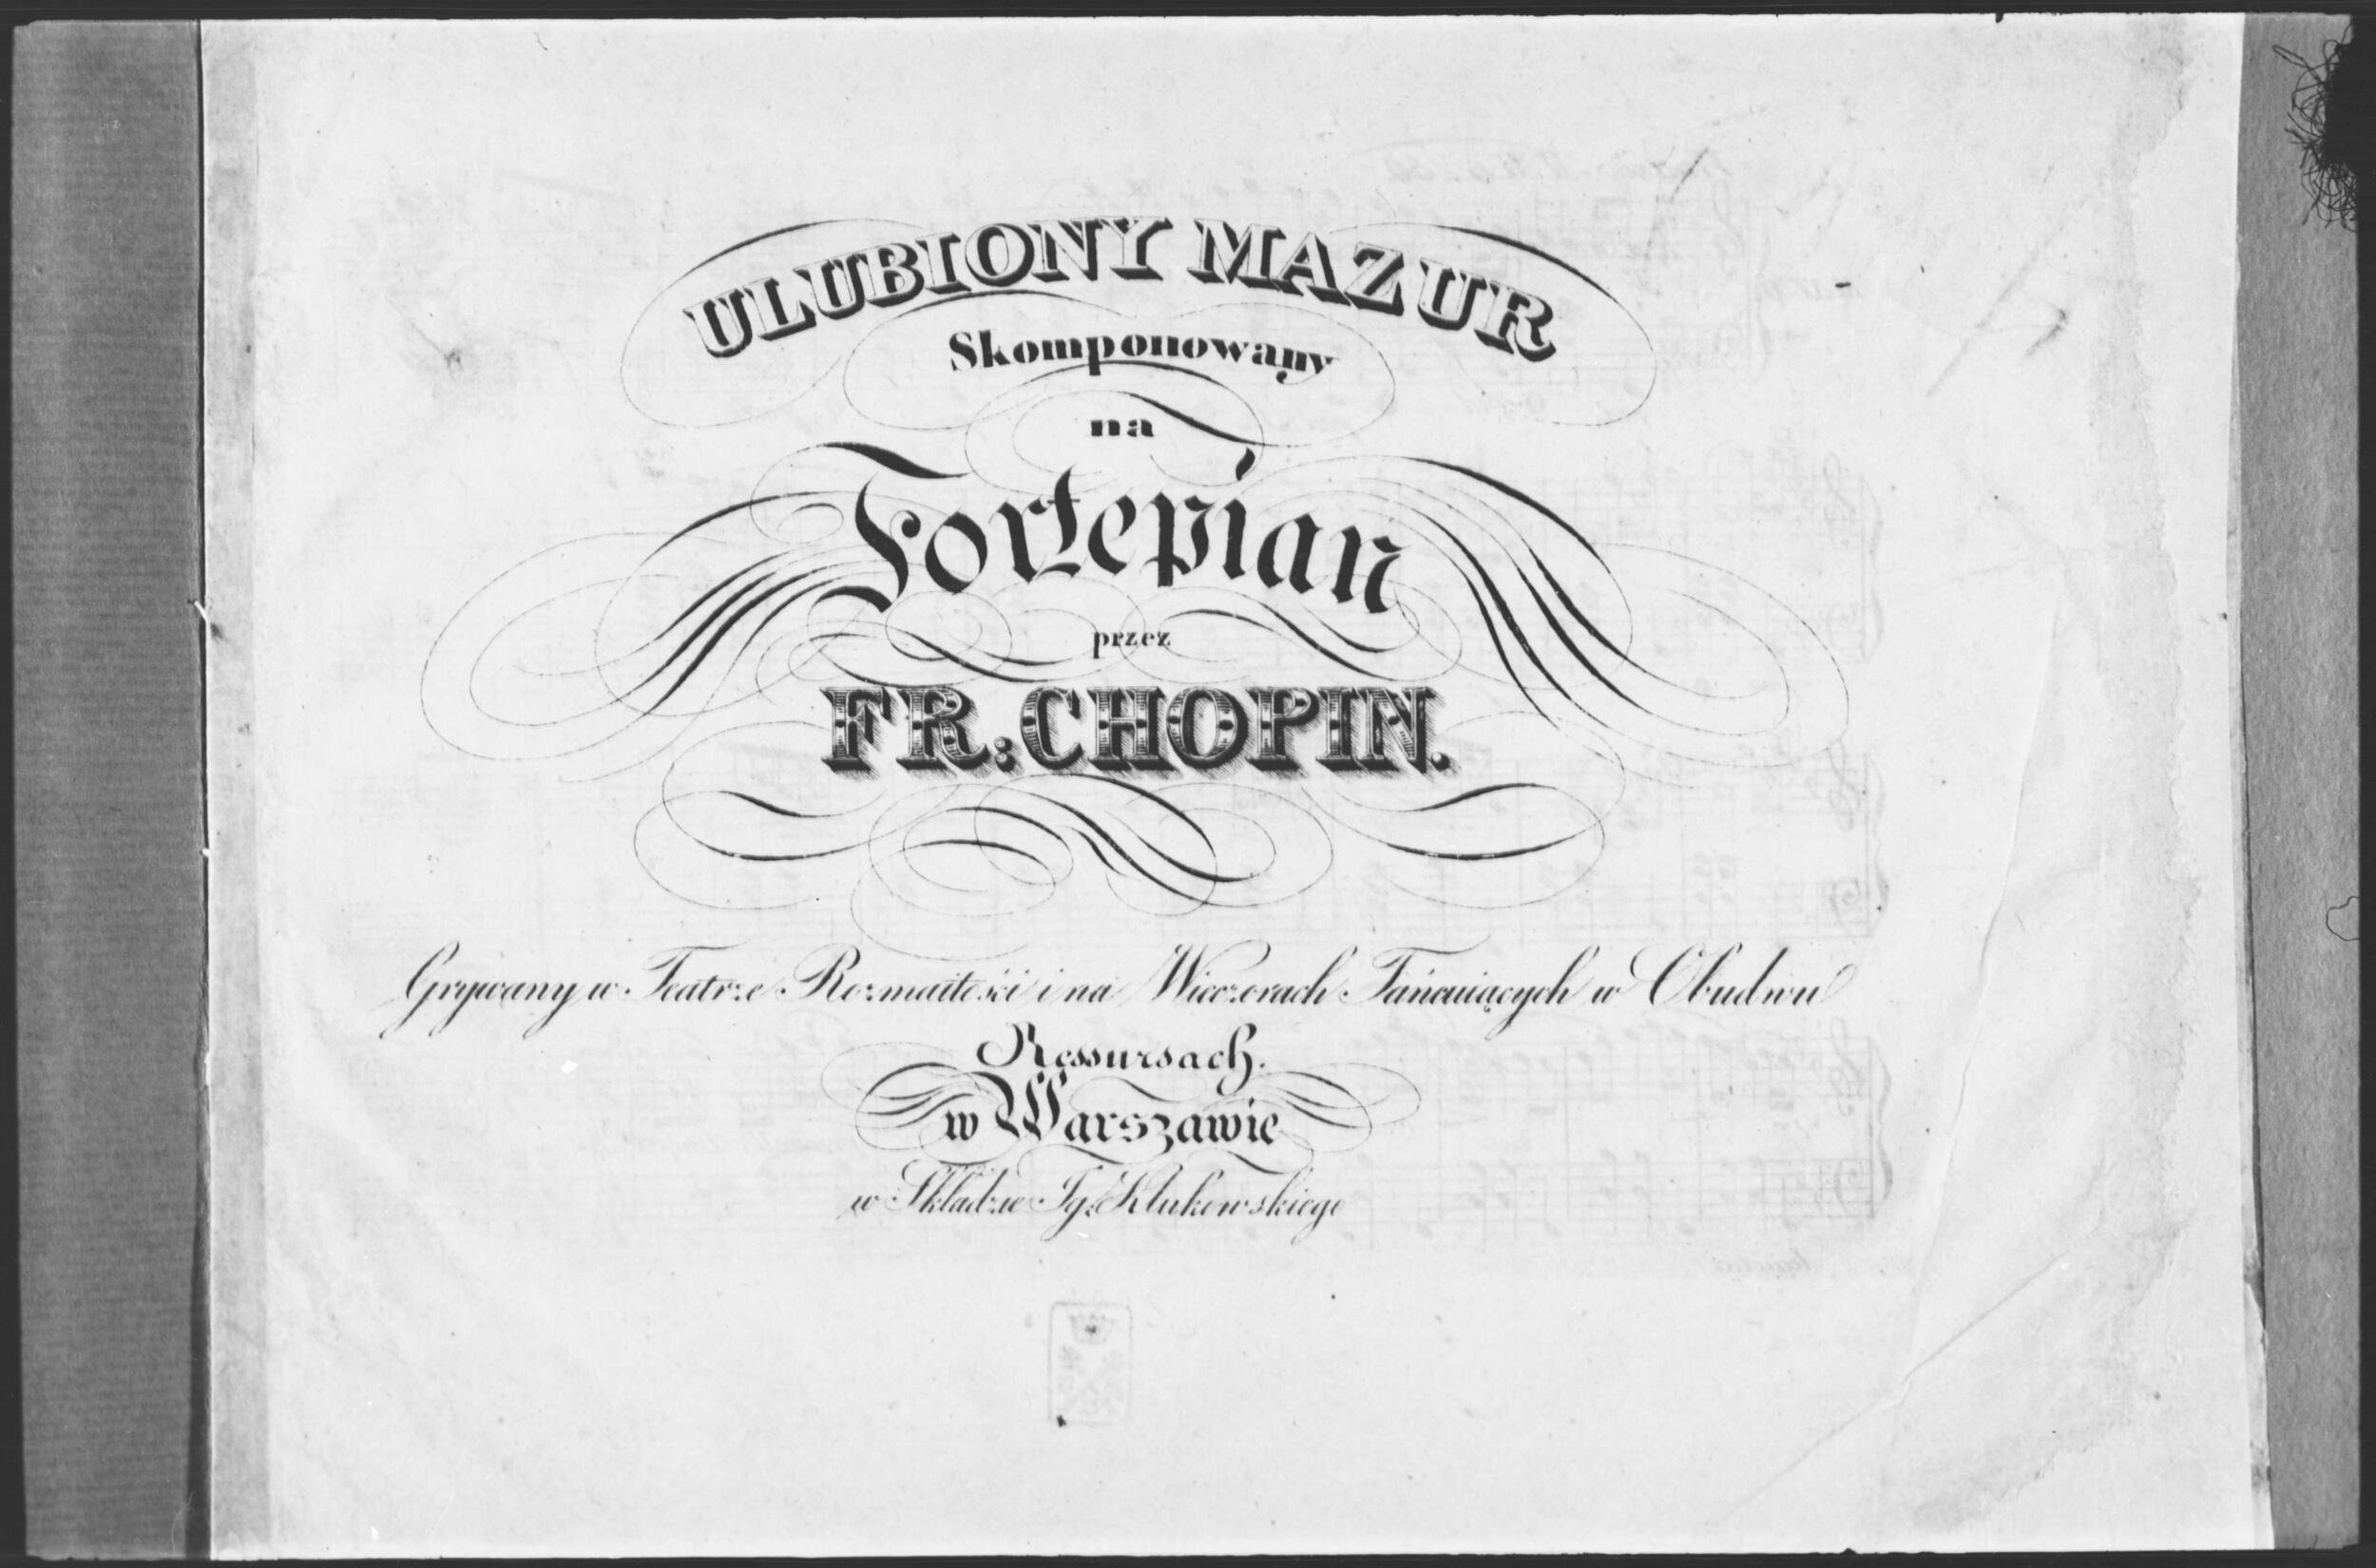 ULUBIONY MAZUR
Skomponowany
na
Fortepian
przez
FR: CHOPIN.
Grywany w Teatrze Rozmaitości i na Wieczorach Tańcuiących w Obudwu
Ressursach.
w Warszawie
w Składzie Ig: Klukowskiego